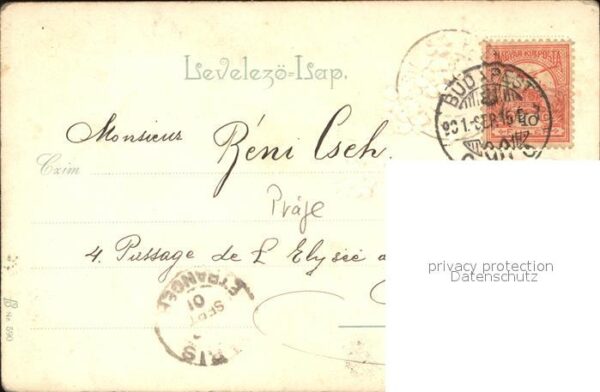 Levelező=Lap.
MAGYAR KIR. POSTA
BUDAPEST
901-SEP. 15
Monsieur Réni Cseh.
Czim
Práje
4. Passage de L Elysée
privacy protection
Datenschutz
ETRANGER
SEPT
01
RIS
B Nr. 590